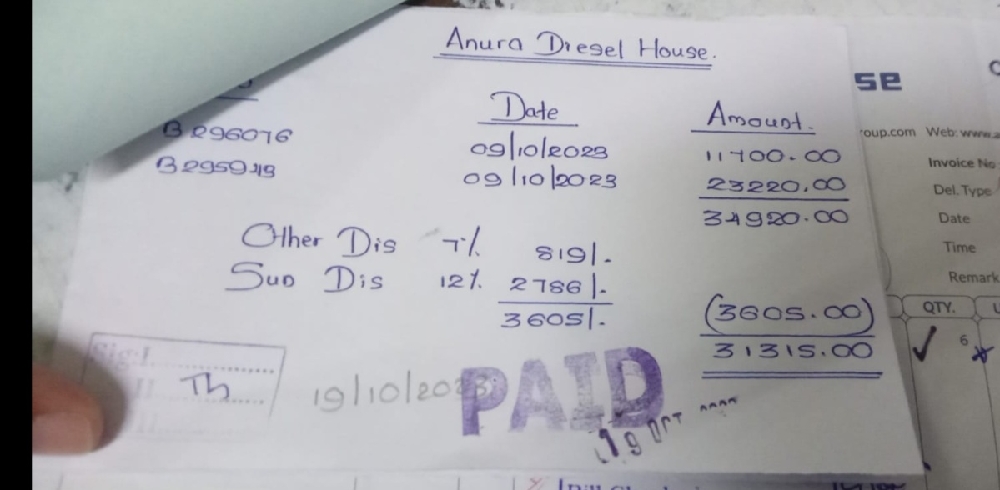 Anura Diesel House.
Date Amount.
B 296076 09/10/2023 11700.00
09/10/2023 23220.00
34920.00
Other Dis 7% 819/.
Sun Dis 12% 2786/.
3605/. (3605.00)
31315.00
Th
19/10/2023
PAID
19 OCT
se
roup.com Web: www.
Invoice No
Del. Type
Date
Time
Remark
QTY.
6